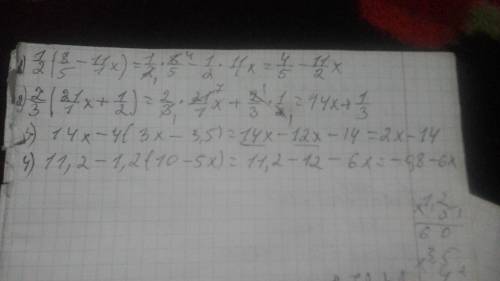 1) 1/2 (8/5 - 11/1 x) = 1/2 1 · 8 4/5 - 1/2 · 11x = 4/5 - 11/2 x
2) 2/3 (21/1 x + 1/2) = 2/3 1 · 21 7/1 x + 2 1/3 · 1/2 1 = 14x + 1/3
3) 14x - 4(3x - 3,5) = 14x - 12x - 14 = 2x - 14
4) 11,2 - 1,2(10 - 5x) = 11,2 - 12 - 6x = -0,8 - 6x
x 1,2
5
6 0
x 3,5